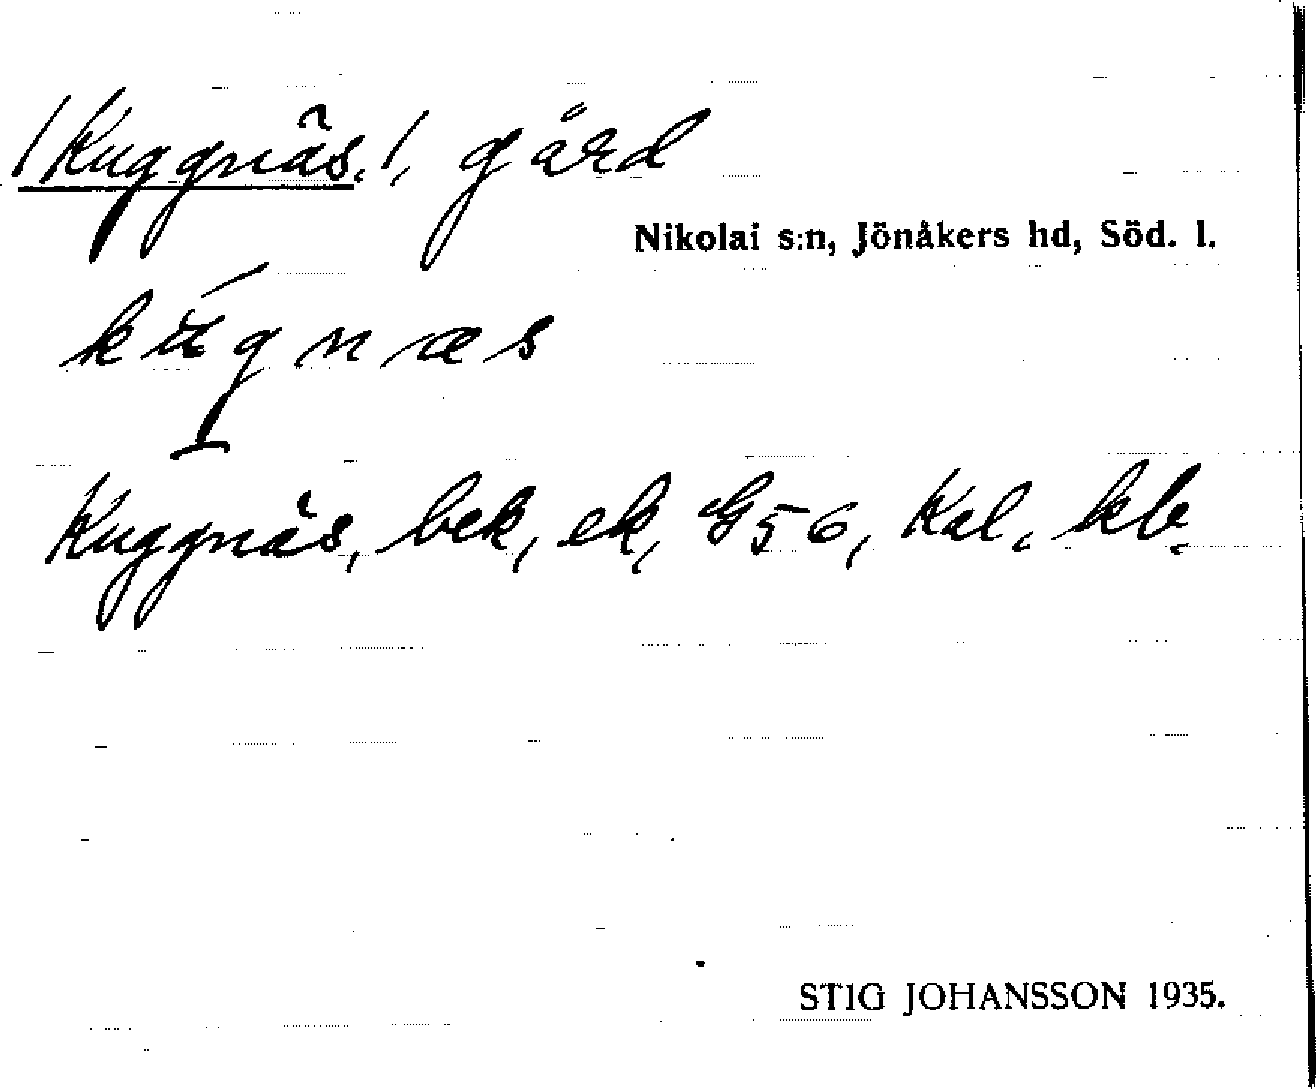 /Kuggnäs./, gård
Nikolai s:n, Jönåkers hd, Söd. l.
kúgnæs
Kuggnäs, bek, ek, G56, Kal. kb.
STIG JOHANSSON 1935.